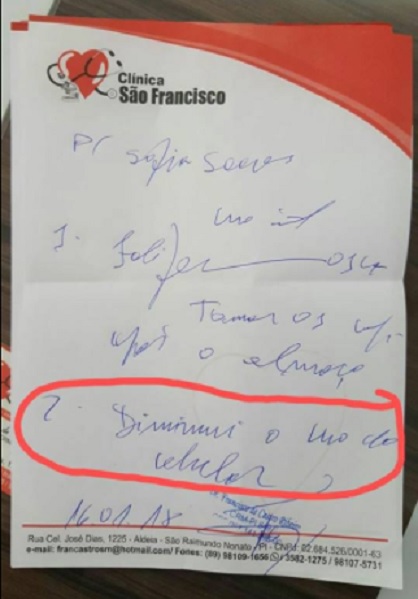 Clínica
São Francisco
P/ Sofia Soares
uso int
1.
Tomar 01 cp.
após o almoço
2. Diminuir o uso do
celular
16.01.18
Rua Cel. José Dias, 1225 - Aldeia - São Raimundo Nonato - PI - CNPJ: 02.684.526/0001-63
e-mail: francastrosrn@hotmail.com/ Fones: (89) 98109-1656 / 3582-1275 / 98107-5731